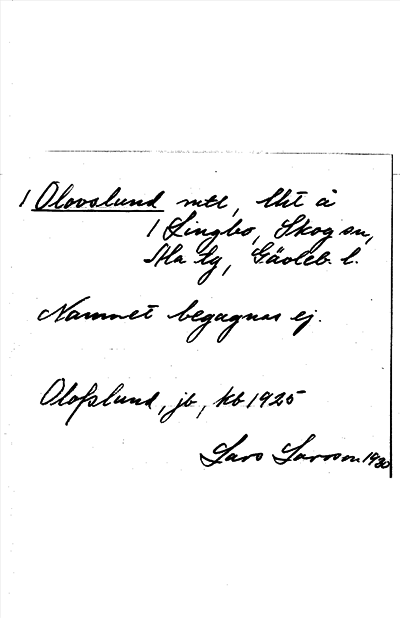 1 Olovslund mtl, Uti å
1 Lingbo, Skog sn,
Ala tg, Gävleb. l.
Namnet begagnas ej.
Olofslund, jb, kb 1925
Lars Larsson 1930